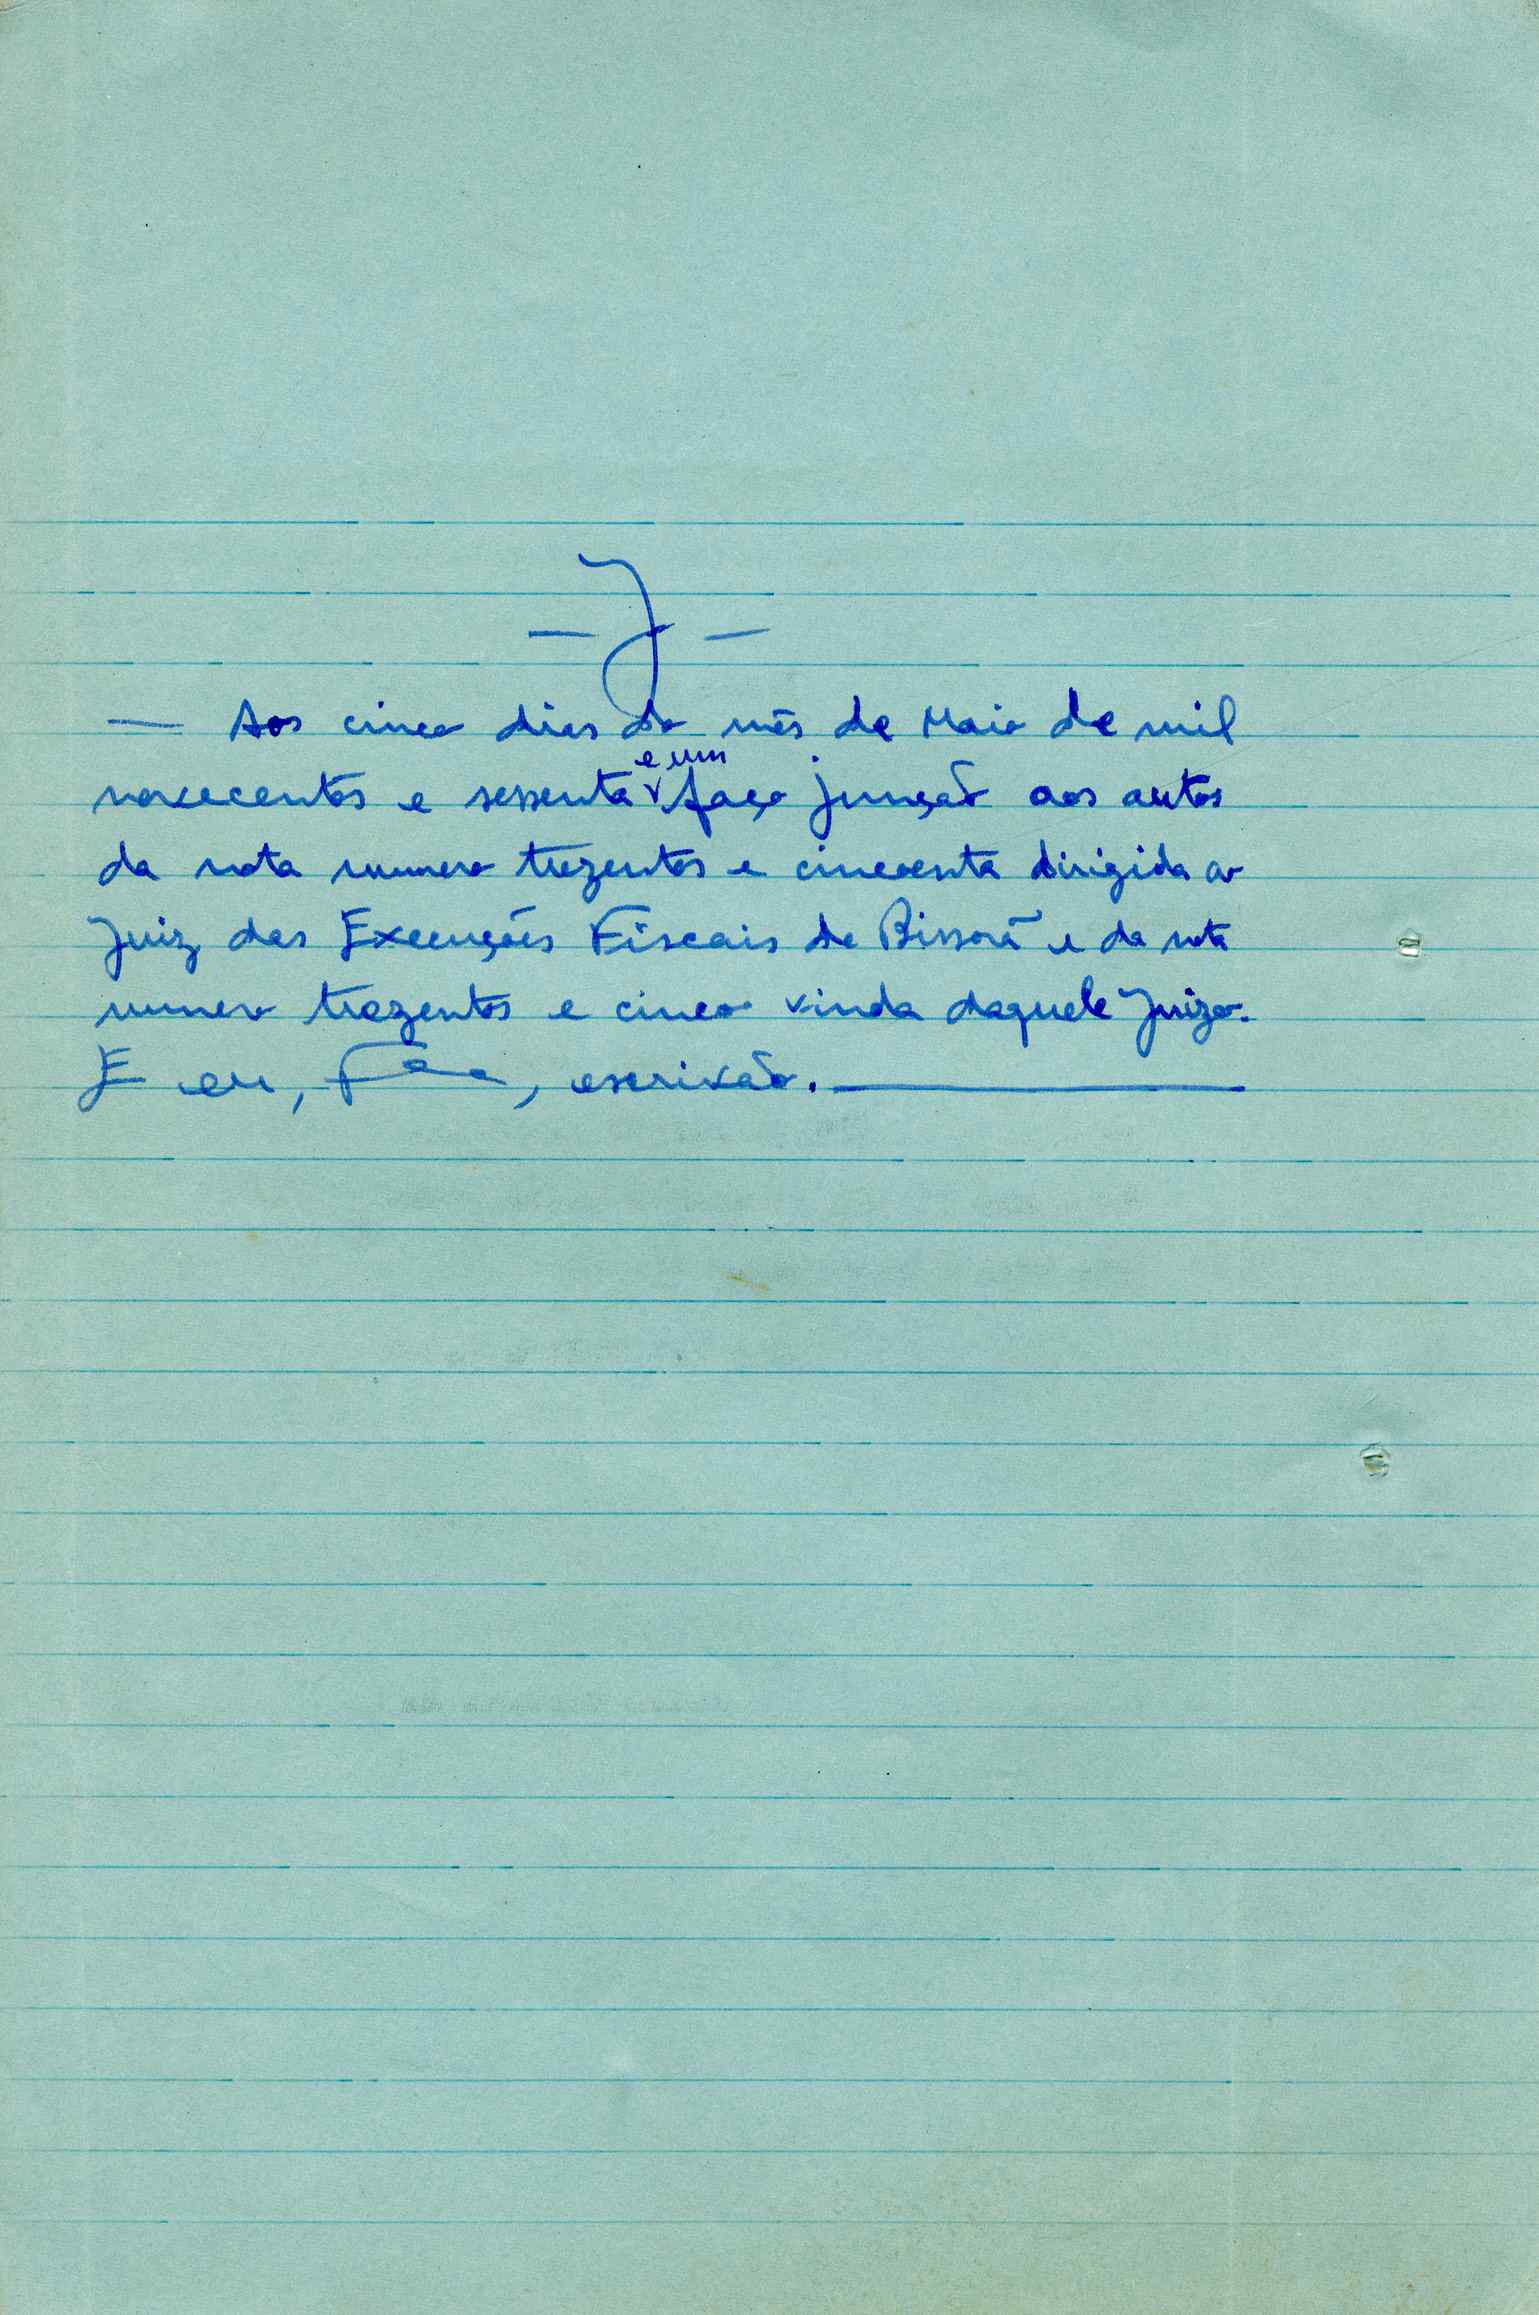 — J —
— Aos cinco dias do mês de Maio de mil
novecentos e sessenta e um faço junção aos autos
da nota numero trezentos e cincoenta dirigida ao
Juiz das Execuções Fiscais de Bissorã e da nota
numero trezentos e cinco vinda daquele Juizo.
E eu, , escrivão.